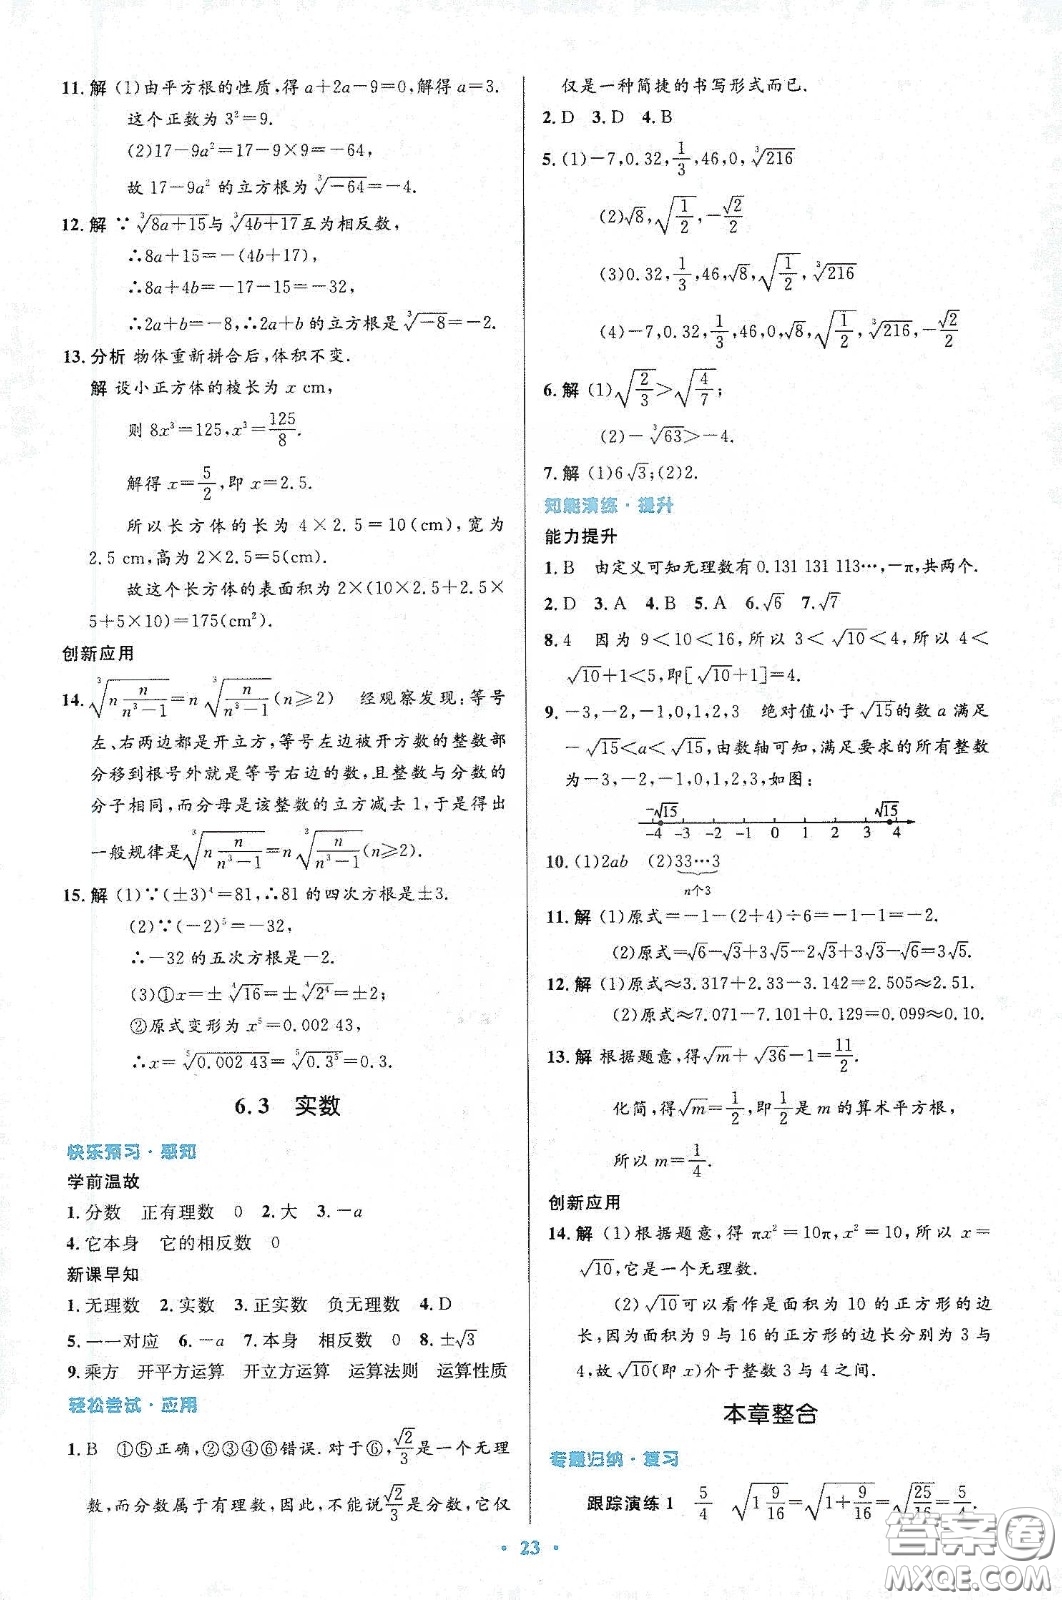 11.解 (1)由平方根的性质,得a+2a-9=0,解得a=3.
这个正数为3²=9.
(2)17-9a²=17-9×9=-64,
故17-9a²的立方根为∛-64=-4.
12.解 ∵∛8a+15与∛4b+17互为相反数,
∴8a+15=-(4b+17),
∴8a+4b=-17-15=-32,
∴2a+b=-8,∴2a+b的立方根是∛-8=-2.
13.分析 物体重新拼合后,体积不变.
解 设小正方体的棱长为x cm,
则8x³=125,x³=125/8.
解得x=5/2,即x=2.5.
所以长方体的长为4×2.5=10(cm),宽为
2.5 cm,高为2×2.5=5(cm).
故这个长方体的表面积为2×(10×2.5+2.5×
5+5×10)=175(cm²).
创新应用
14.∛(n n/(n³-1))=n∛(n/(n³-1))(n≥2) 经观察发现:等号
左、右两边都是开立方,等号左边被开方数的整数部
分移到根号外就是等号右边的数,且整数与分数的
分子相同,而分母是该整数的立方减去1,于是得出
一般规律是∛(n n/(n³-1))=n∛(n/(n³-1))(n≥2).
15.解 (1)∵(±3)⁴=81,∴81的四次方根是±3.
(2)∵(-2)⁵=-32,
∴-32的五次方根是-2.
(3)①x=±⁴√16=±⁴√2⁴=±2;
②原式变形为x⁵=0.002 43,
∴x=⁵√0.002 43=⁵√0.3⁵=0.3.
6.3 实数
快乐预习·感知
学前温故
1.分数 正有理数 0 2.大 3.-a
4.它本身 它的相反数 0
新课早知
1.无理数 2.实数 3.正实数 负无理数 4.D
5.一一对应 6.-a 7.本身 相反数 0 8.±√3
9.乘方 开平方运算 开立方运算 运算法则 运算性质
轻松尝试·应用
1.B ①⑤正确,②③④⑥错误.对于⑥,√2/3是一个无理
数,而分数属于有理数,因此,不能说√2/3是分数,它仅
仅是一种简捷的书写形式而已.
2.D 3.D 4.B
5.(1)-7,0.32,1/3,46,0,∛216
(2)√8,√(1/2),-√2/2
(3)0.32,1/3,46,√8,√(1/2),∛216
(4)-7,0.32,1/3,46,0,√8,√(1/2),∛216,-√2/2
6.解 (1)√(2/3)>√(4/7);
(2)-∛63>-4.
7.解 (1)6√3;(2)2.
知能演练·提升
能力提升
1.B 由定义可知无理数有0.131 131 113…,-π,共两个.
2.D 3.A 4.B 5.A 6.√6 7.√7
8.4 因为9<10<16,所以3<√10<4,所以4<
√10+1<5,即[√10+1]=4.
9.-3,-2,-1,0,1,2,3 绝对值小于√15的数a满足
-√15<a<√15,由数轴可知,满足要求的所有整数
为-3,-2,-1,0,1,2,3,如图:
-√15 √15
-4 -3 -2 -1 0 1 2 3 4
10.(1)2ab (2)33…3
n个3
11.解 (1)原式=-1-(2+4)÷6=-1-1=-2.
(2)原式=√6-√3+3√5-2√5+√3-√6=3√5.
12.解 (1)原式≈3.317+2.33-3.142=2.505≈2.51.
(2)原式≈7.071-7.101+0.129=0.099≈0.10.
13.解 根据题意,得√m+√36-1=11/2.
化简,得√m=1/2,即1/2是m的算术平方根,
所以m=1/4.
创新应用
14.解 (1)根据题意,得πx²=10π,x²=10,所以x=
√10,它是一个无理数.
(2)√10可以看作是面积为10的正方形的边
长,因为面积为9与16的正方形的边长分别为3与
4,故√10(即x)介于整数3与4之间.
本章整合
专题归纳·复习
跟踪演练1 5/4 √(1 9/16)=√(1+9/16)=√(25/16)=5/4.
·23·
答案圈
MXQE.COM